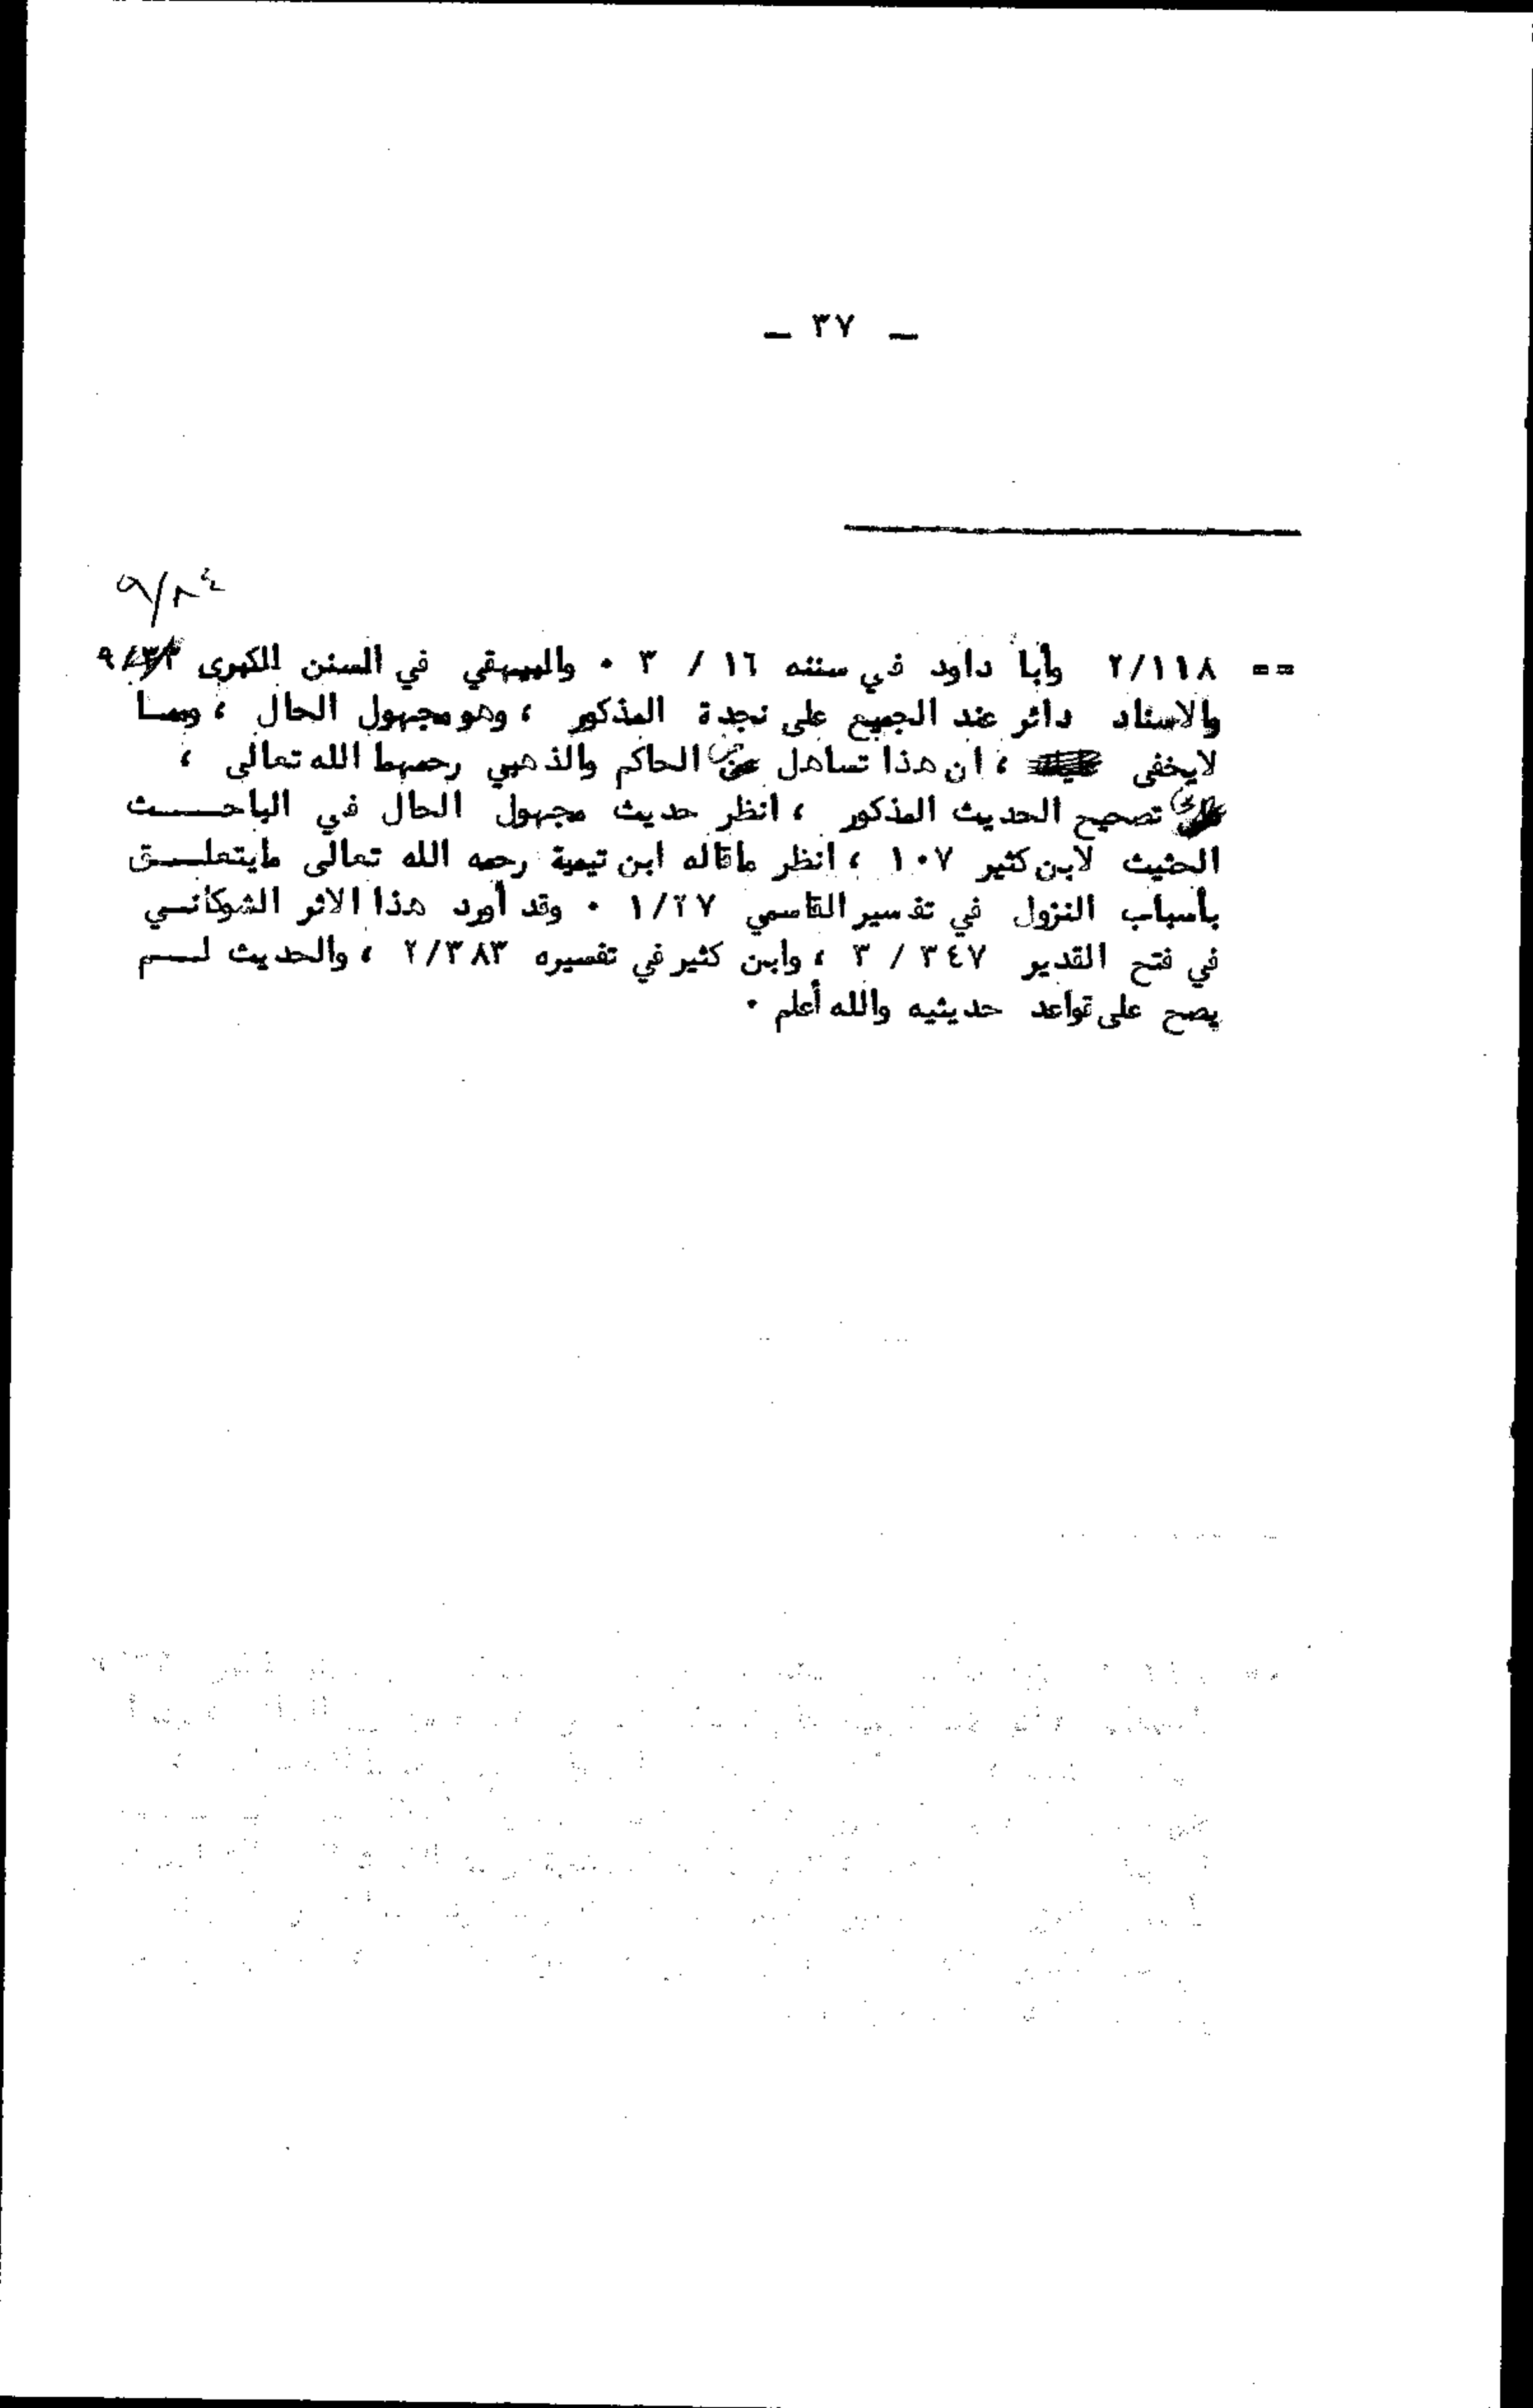 ـ ٣٧ ـ
٩/٨٤
== ٢/١١٨ وأبا داود في سننه ١٦ / ٣ ٠ والبيهقي في السنن الكبرى
والاسناد دائر عند الجميع على نجدة المذكور ، وهو مجهول الحال ، ومما
لايخفى ، ان هذا تساهل من الحاكم والذهبي رحمهما الله تعالى ،
في تصحيح الحديث المذكور ، انظر حديث مجهول الحال في الباحـــث
الحثيث لابن كثير ١٠٧ ، انظر ماقاله ابن تيمية رحمه الله تعالى مايتعلــق
بأسباب النزول في تفسير القاسمي ١/٢٧ ٠ وقد أورد هذا الاثر الشوكانــي
في فتح القدير ٣٤٧ / ٣ ، وابن كثير في تفسيره ٢/٣٨٣ ، والحديث لــم
يصح على قواعد حديثيه والله أعلم ٠